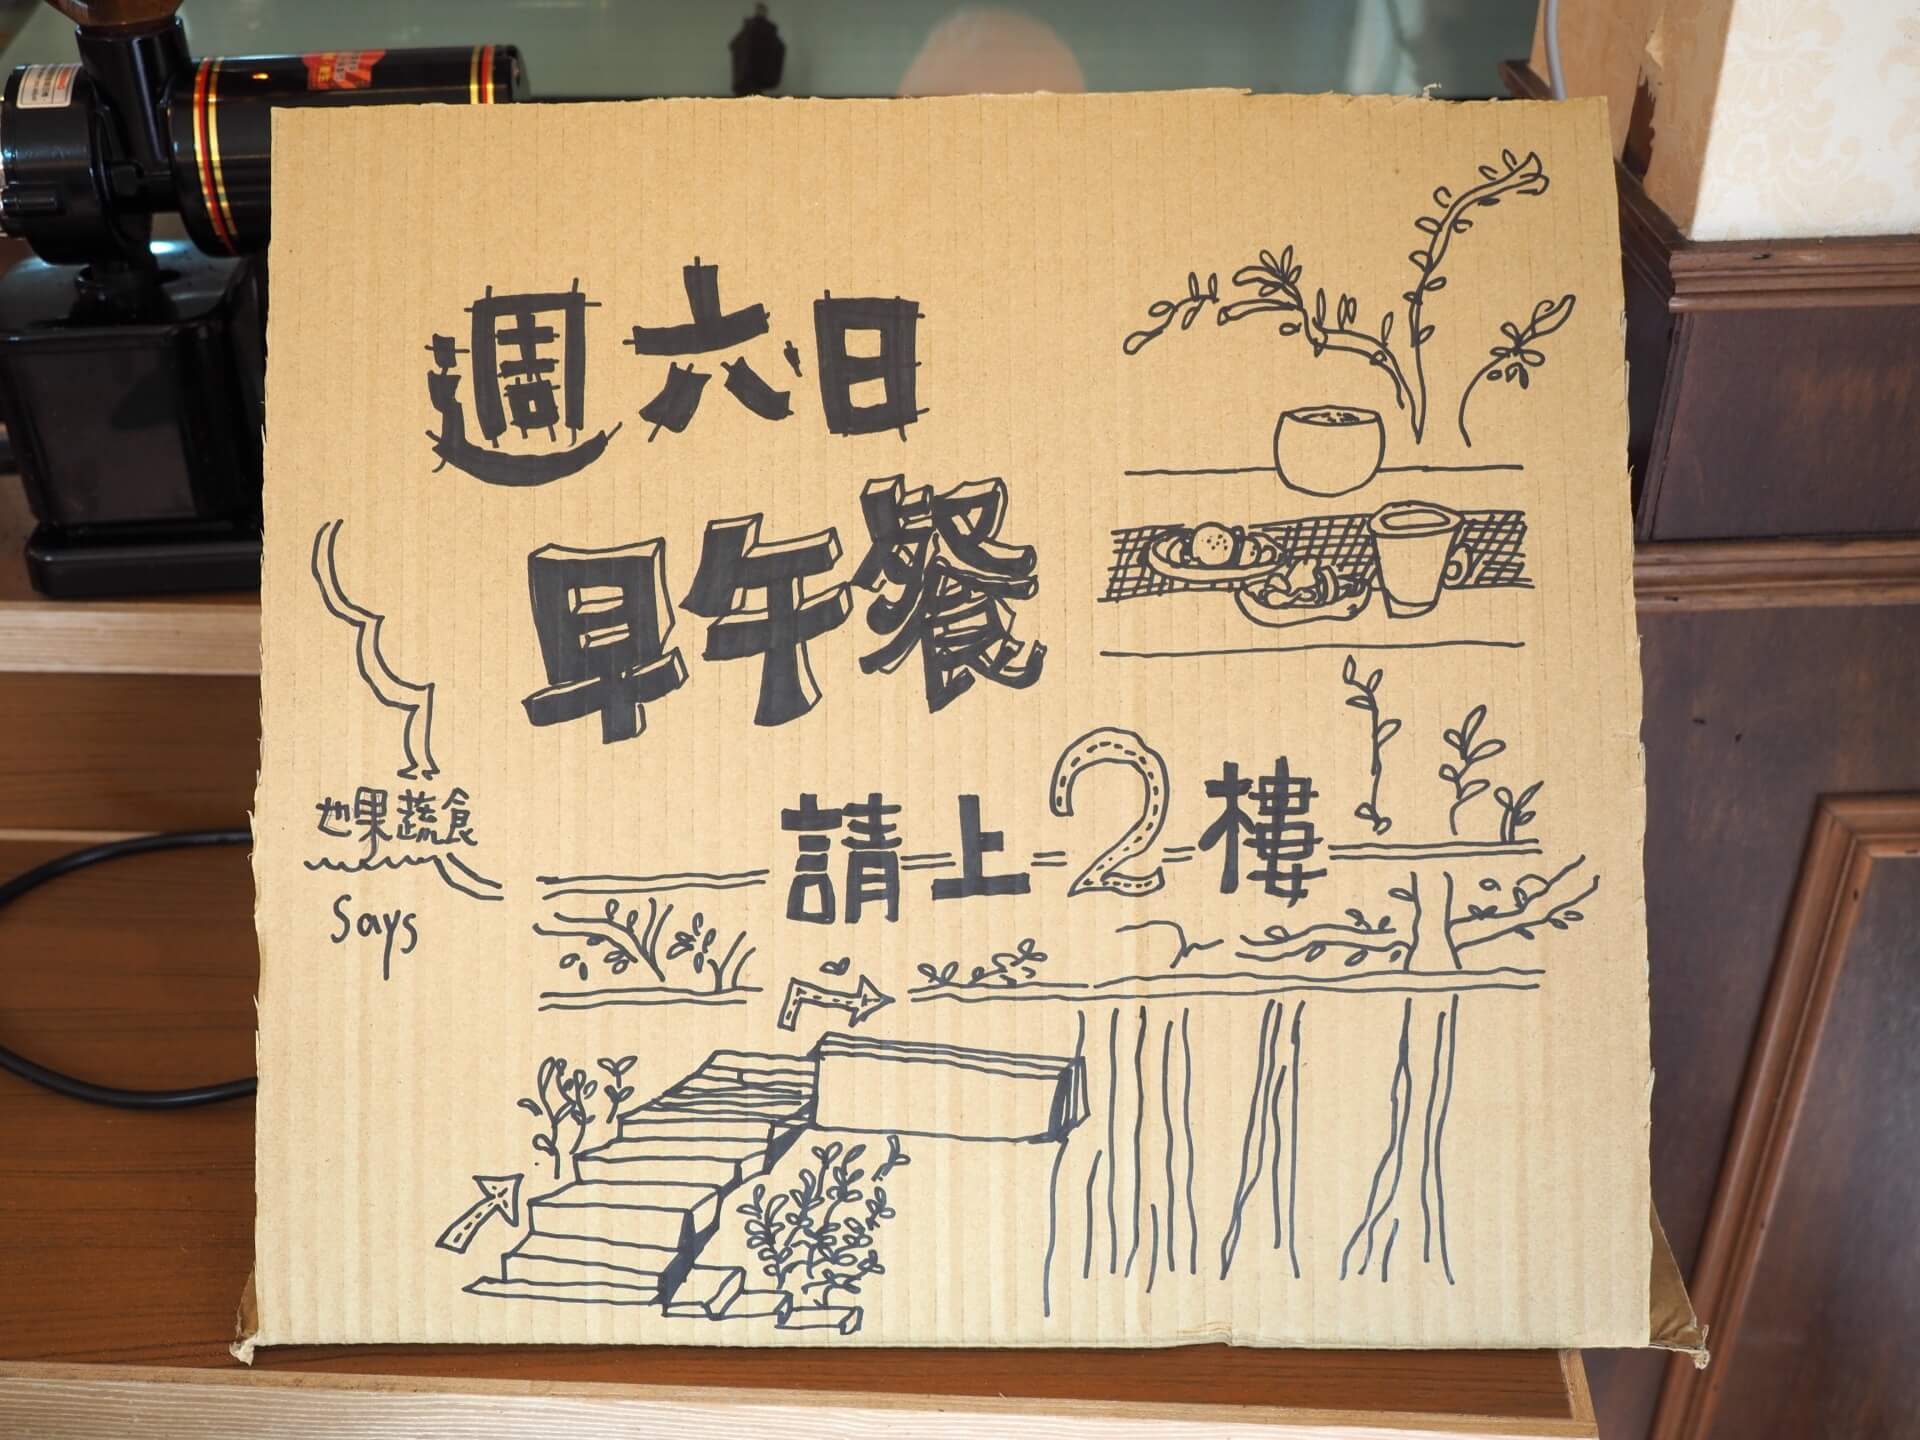 週六日
早午餐
請上2樓
也果蔬食
Says